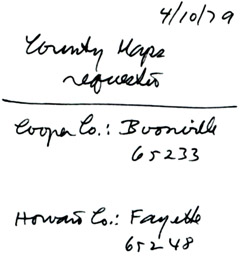 4/10/79
County Maps
requested
Cooper Co.: Boonville
65233
Howard Co.: Fayette
65248